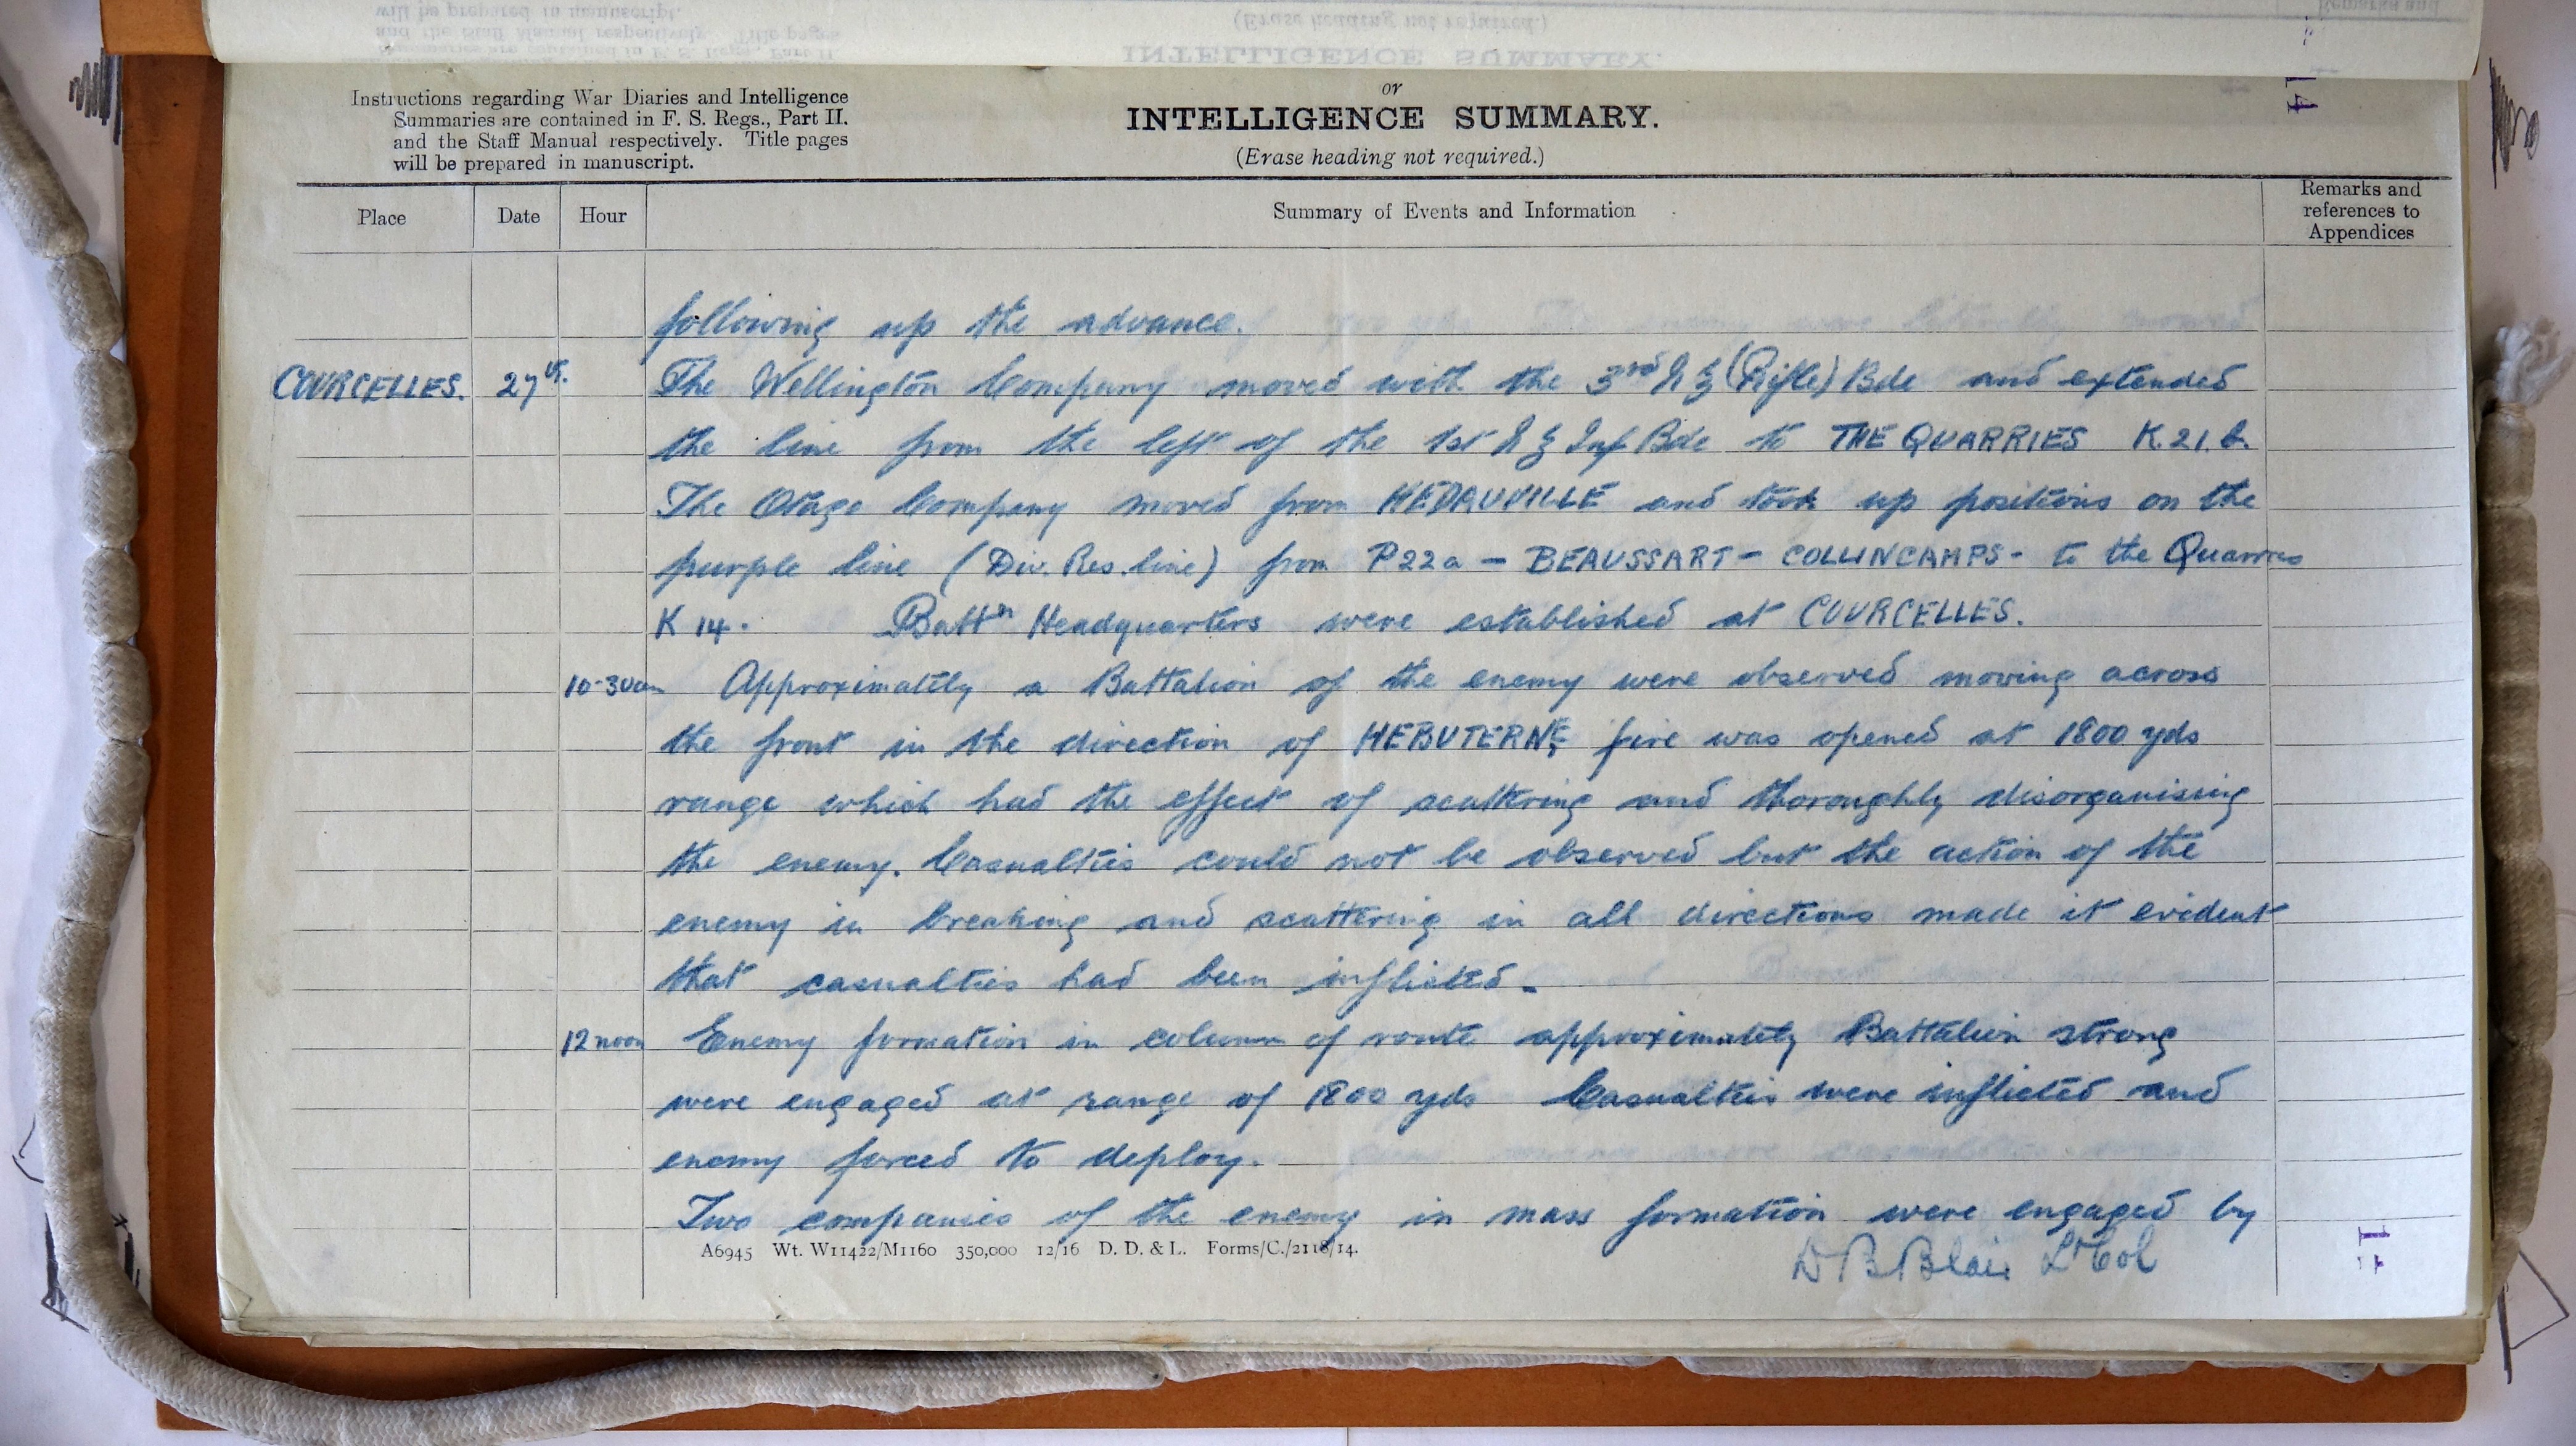 Instructions regarding War Diaries and Intelligence
Summaries are contained in F. S. Regs., Part II.
and the Staff Manual respectively. Title pages
will be prepared in manuscript.
or
INTELLIGENCE SUMMARY.
(Erase heading not required.)
14
Place Date Hour Summary of Events and Information Remarks and
references to
Appendices
following up the advance.
COURCELLES. 27th. The Wellington Company moved with the 3rd N Z (Rifle) Bde and extended
the line from the left of the 1st N Z Inf Bde to THE QUARRIES K.21.b.
The Otago Company moved from HEDAUVILLE and took up positions on the
purple line (Div. Res. line) from P22a - BEAUSSART - COLLINCAMPS - to the Quarries
K 14. Battn Headquarters were established at COURCELLES.
10-30am Approximately a Battalion of the enemy were observed moving across
the front in the direction of HEBUTERNE, fire was opened at 1800 yds
range which had the effect of scattering and thoroughly disorganising
the enemy. Casualties could not be observed but the action of the
enemy in breaking and scattering in all directions made it evident
that casualties had been inflicted.
12 noon Enemy formation in column of route approximately Battalion strong
were engaged at range of 1800 yds Casualties were inflicted and
enemy forced to deploy.
Two companies of the enemy in mass formation were engaged by
A6945 Wt. W11422/M1160 350,000 12/16 D. D. & L. Forms/C./2118/14.
D B Blair Lt Col